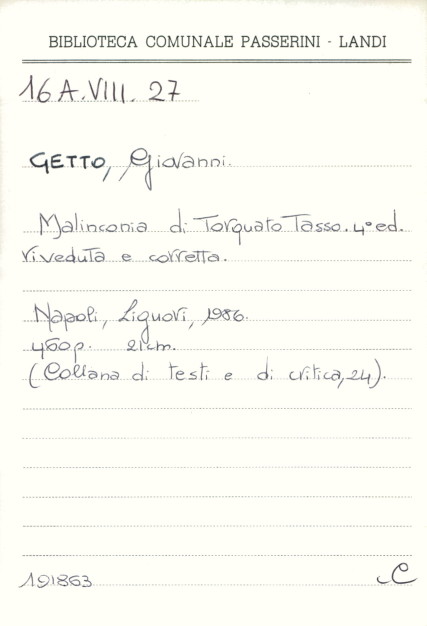 BIBLIOTECA COMUNALE PASSERINI - LANDI
16 A.VIII. 27
GETTO, Giovanni.
Malinconia di Torquato Tasso. 4° ed.
riveduta e corretta.
Napoli, Liguori, 1986.
460p. 21cm.
(Collana di testi e di critica, 24).
191863 C